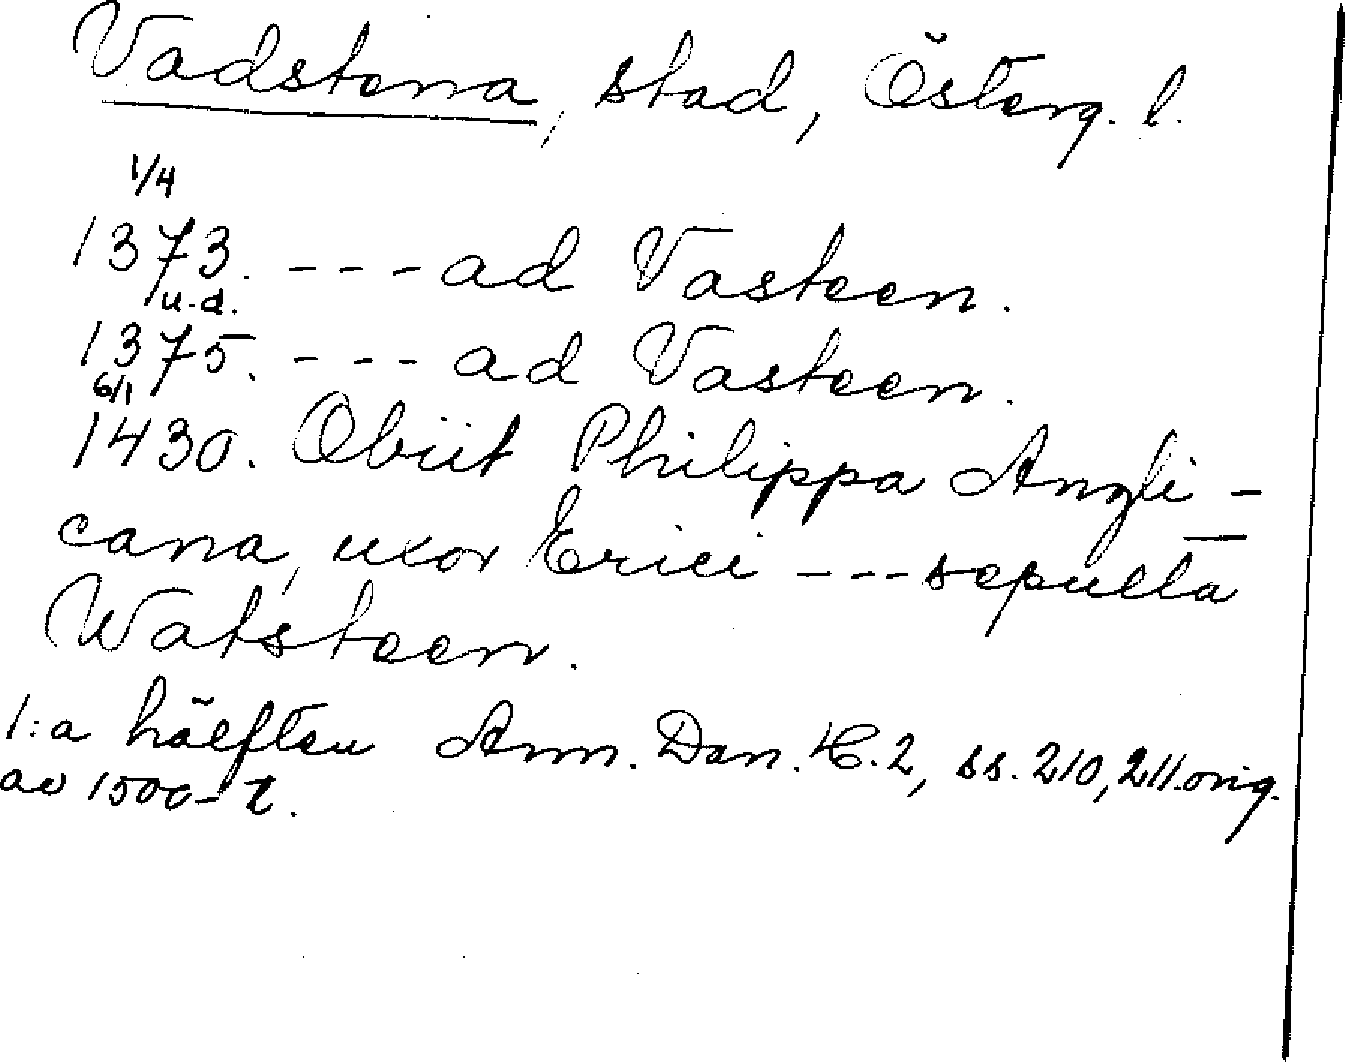 Vadstena, stad, Österg. l.
1/4
1373. --- ad Vasteen.
u.d.
1375. --- ad Vasteen.
6/1
1430. Obiit Philippa Angli-
cana, uxor Erici --- sepulta
Watsteen.
1:a hälften Ann. Dan. 2, ss. 210, 211. orig.
av 1500-t.